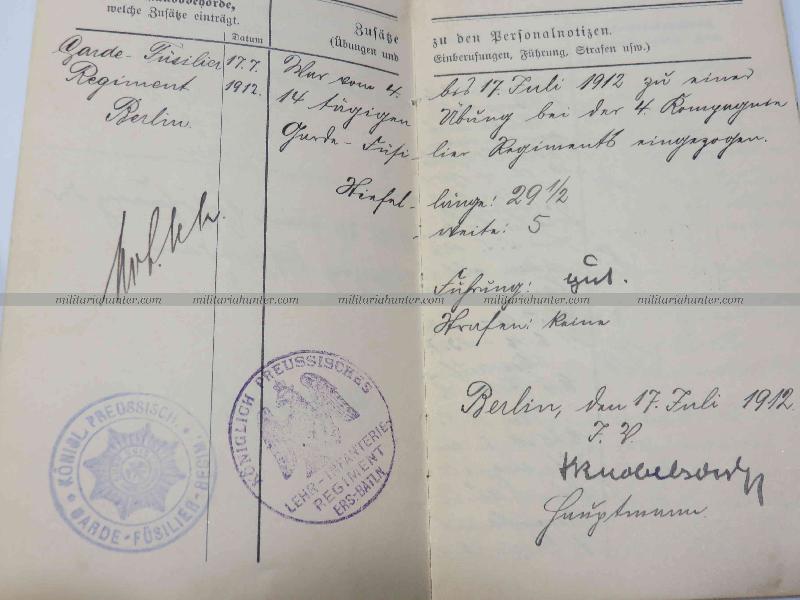 welche Zusätze einträgt.
Datum
Garde-Füsilier
Regiment
Berlin.
17.7.
1912.
Zusätze
(Übungen und
War vom 4.
14 tägigen
Garde-Füsi-
Stiefel-
zu den Personalnotizen.
Einberufungen, Führung, Strafen usw.)
bis 17. Juli 1912 zu einer
Übung bei der 4. Kompagnie
lier Regiments eingezogen.
länge: 29 1/2
weite: 5
Führung: gut.
Strafen: keine
militariahunter.com militariahunter.com militariahunter.com militariahunter.com militariahunter.com
Berlin, den 17. Juli 1912.
I. V.
Hauptmann.
KÖNIGL. PREUSSISCH.
GARDE-FÜSILIER-REGIM.
KÖNIGLICH PREUSSISCHES
LEHR-INFANTERIE-
REGIMENT
ERS-BATLN.